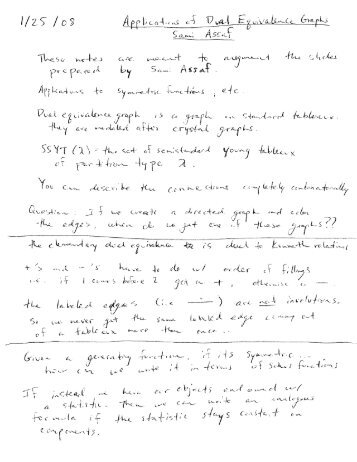 1/25/08 Applications of Dual Equivalence Graphs
Sami Assaf
These notes are meant to augment the slides
prepared by Sami Assaf.
Applications to symmetric functions, etc.
Dual equivalence graph is a graph on standard tableaux.
they are modeled after crystal graphs.
SSYT(λ) - the set of semistandard Young tableux
of partition type λ.
You can describe the connections completely combinatorially
Question: If we create a directed graph and color
the edges, when do we get one of these graphs??
the elementary dual equivalence is dual to Knuth relations
+'s and -'s have to do w/ order of fillings
i.e. if 1 comes before 2 get a +, otherwise a -
the labeled edges (i.e. —) are not involutions.
So we never get the same labeled edge coming out
of a tableaux more than once..
Given a generating function, if its symmetric...
how can we write it in terms of Schur functions
If instead we have our objects endowed w/
a statistic. Then we can write an analogous
formula if the statistic stays constant on
components.